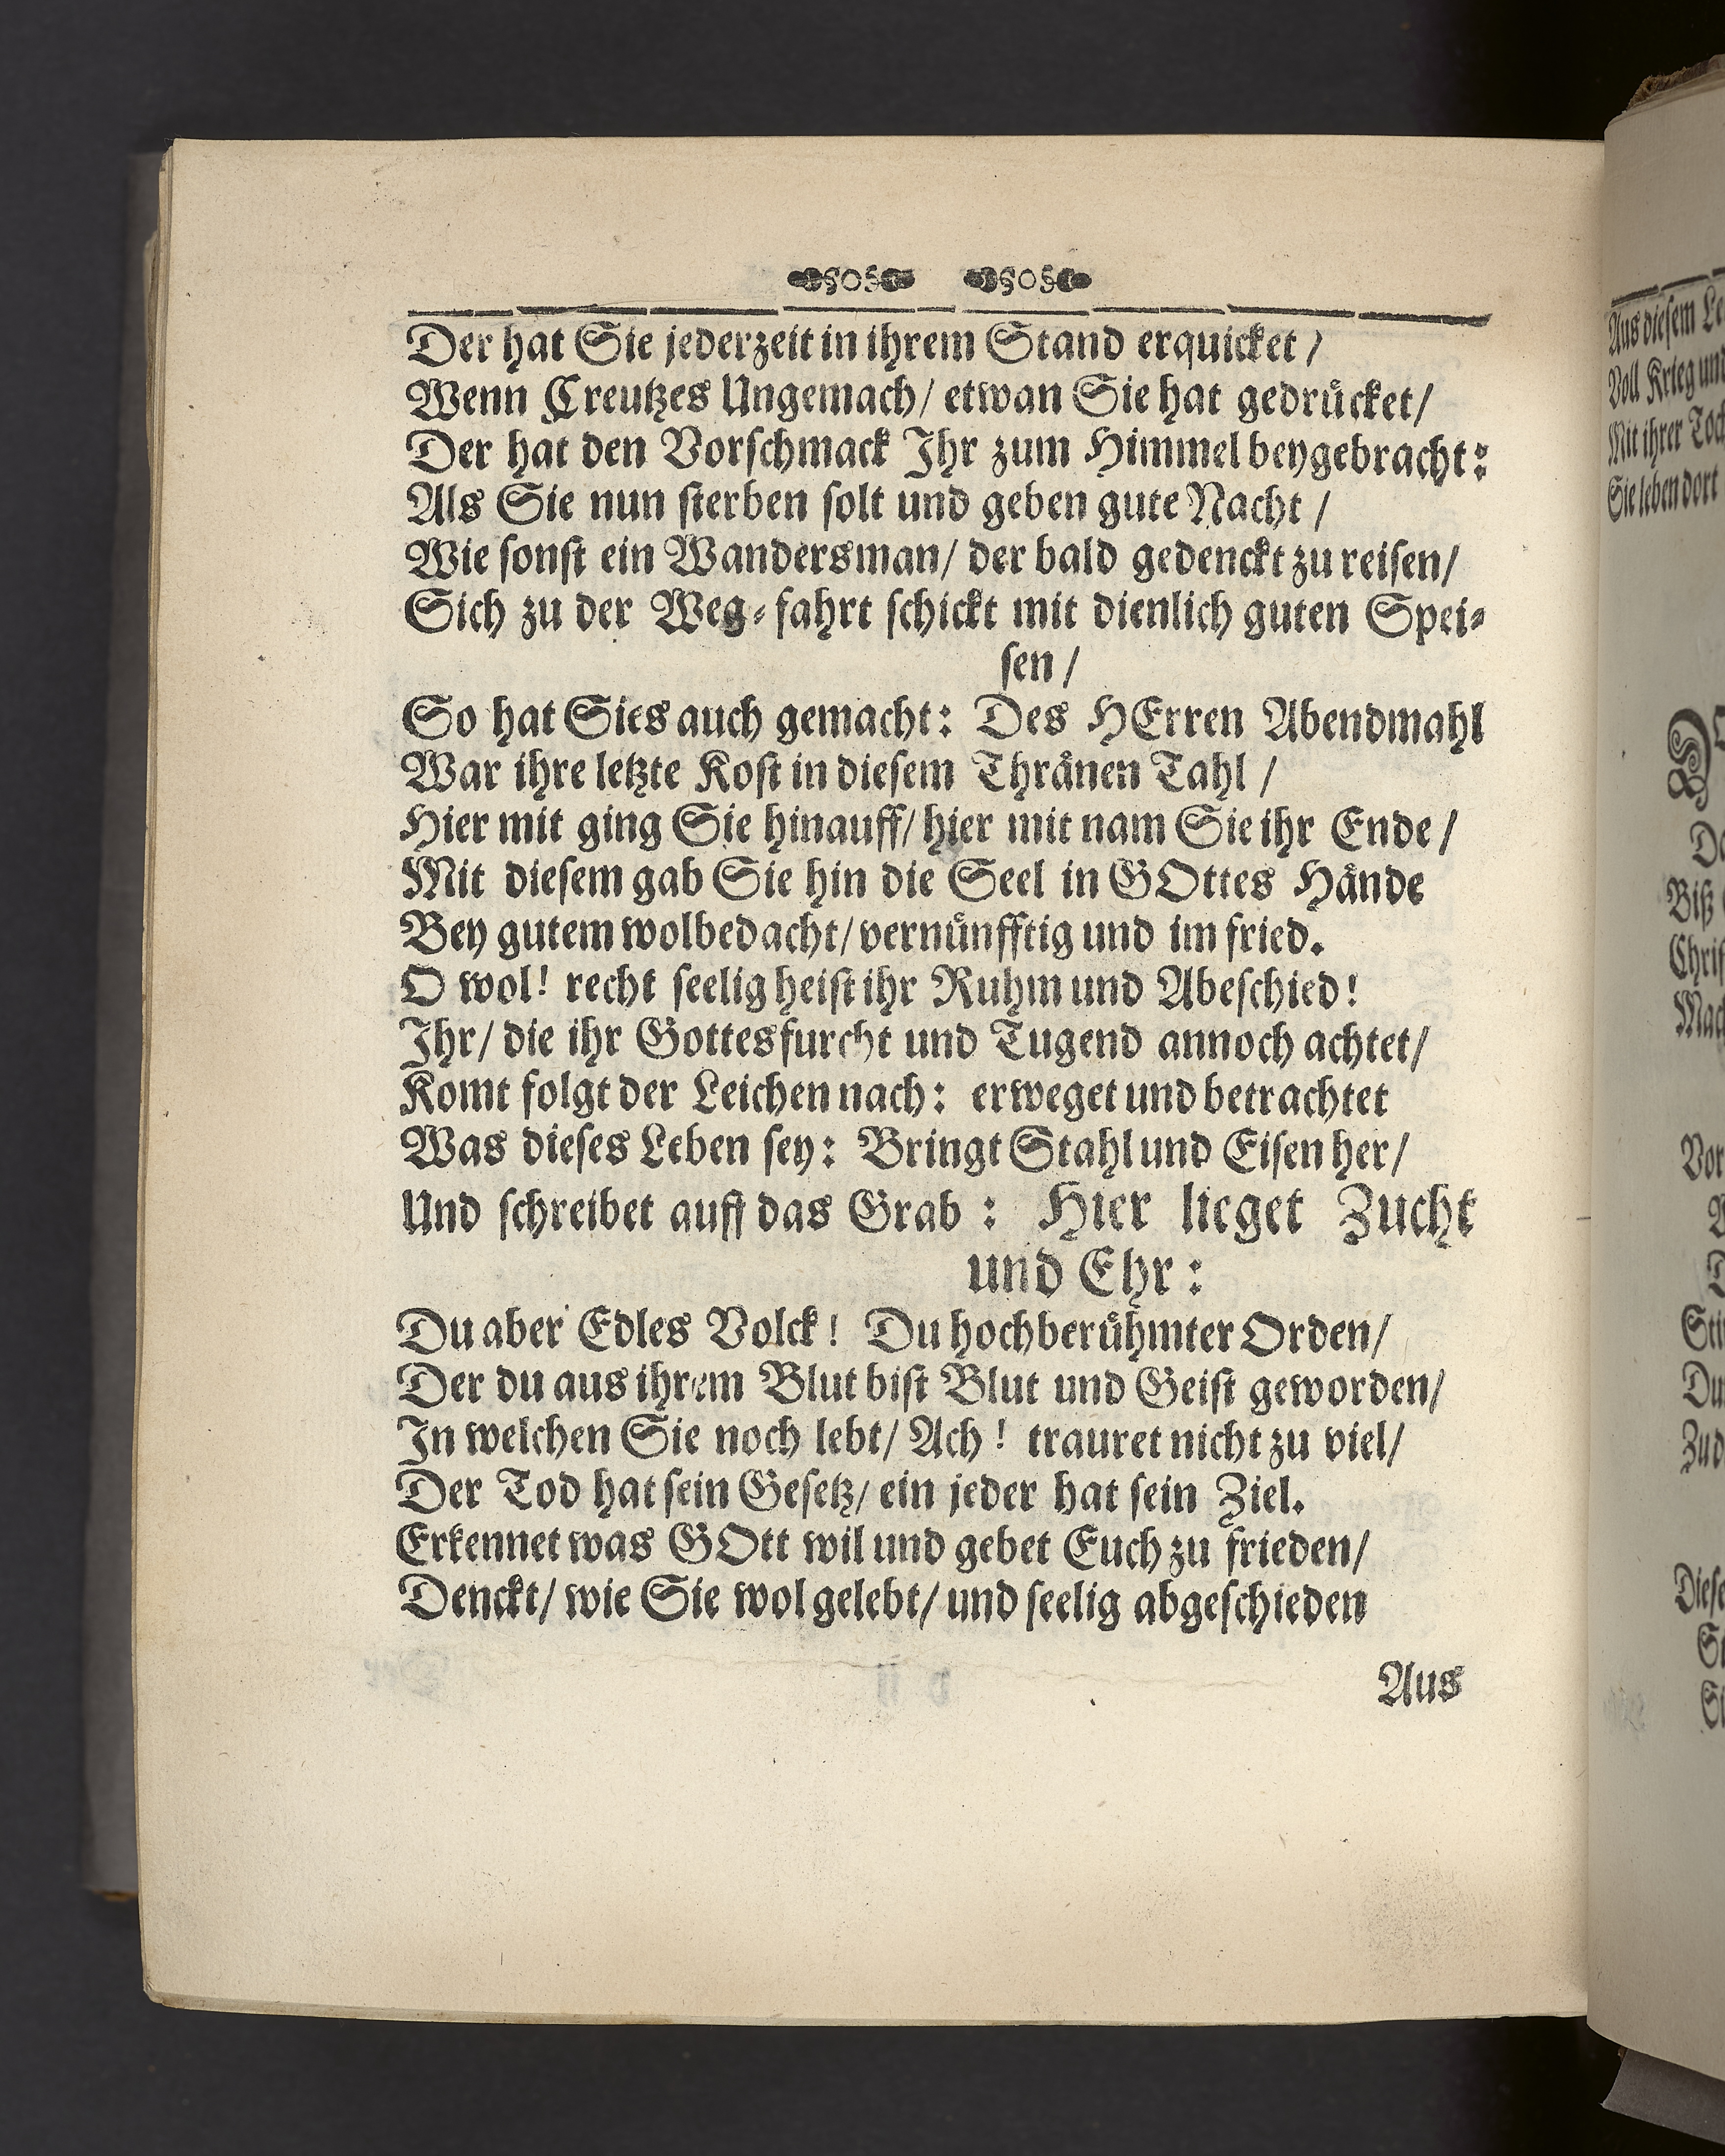 Der hat Sie jederzeit in ihrem Stand erquicket /
Wenn Creutzes Ungemach/ etwan Sie hat gedruͤcket/
Der hat den Vorſchmack Ihr zum Himmel beygebracht:
Als Sie nun ſterben ſolt und geben gute Nacht /
Wie ſonſt ein Wandersman/ der bald gedenckt zu reiſen/
Sich zu der Weg-fahrt ſchickt mit dienlich guten Spei-
ſen /
So hat Sies auch gemacht: Des HErren Abendmahl
War ihre letzte Koſt in dieſem Thraͤnen Tahl /
Hier mit ging Sie hinauff/ hier mit nam Sie ihr Ende /
Mit dieſem gab Sie hin die Seel in GOttes Haͤnde
Bey gutem wolbedacht/ vernuͤnfftig und im fried.
O wol! recht ſeelig heiſt ihr Ruhm und Abeſchied!
Ihr/ die ihr Gottesfurcht und Tugend annoch achtet/
Komt folgt der Leichen nach: erweget und betrachtet
Was dieſes Leben ſey: Bringt Stahl und Eiſen her/
Und ſchreibet auff das Grab : Hier lieget Zucht
und Ehr :
Du aber Edles Volck! Du hochberuͤhmter Orden/
Der du aus ihrem Blut biſt Blut und Geiſt geworden/
In welchen Sie noch lebt/ Ach! trauret nicht zu viel/
Der Tod hat ſein Geſetz/ ein jeder hat ſein Ziel.
Erkennet was GOtt wil und gebet Euch zu frieden/
Denckt/ wie Sie wol gelebt/ und ſeelig abgeſchieden
Aus
Aus dieſem
Voll Krieg
Mit ihrer
Sie leben dort
Biß